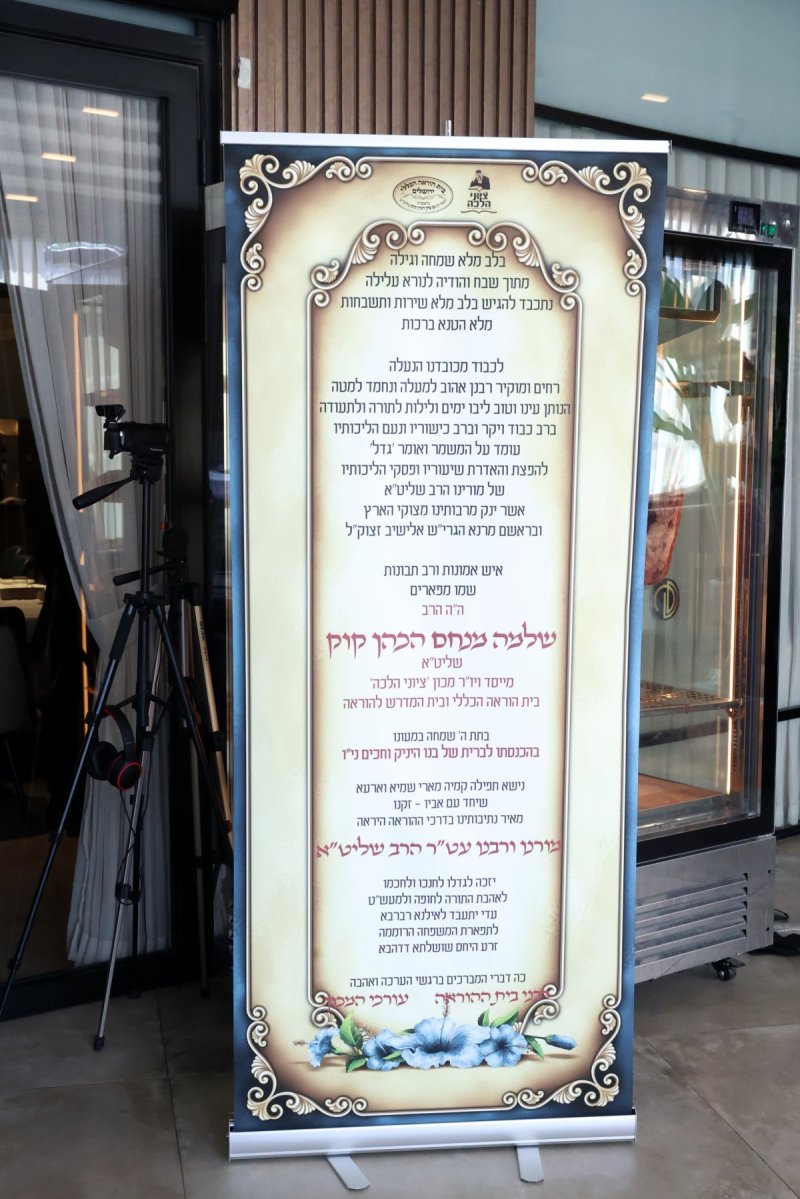 בית הוראה הכללי
ירושלים
ציוני
הלכה
בלב מלא שמחה וגילה
מתוך שבח והודיה לנורא עלילה
נתכבד להגיש בלב מלא שירות ותשבחות
מלא הטנא ברכות
לכבוד מכובדנו הנעלה
רחים ומוקיר רבנן אהוב למעלה ונחמד למטה
הנותן עינו וטוב ליבו ימים ולילות לתורה ולתעודה
ברב כבוד ויקר וברב כישוריו ונעם הליכותיו
עומד על המשמר ואומר 'גדל'
להפצת והאדרת שיעוריו ופסקי הליכותיו
של מורינו הרב שליט"א
אשר ינק מרבותינו מצוקי הארץ
ובראשם מרנא הגרי"ש אלישיב זצוק"ל
איש אמונות ורב תבונות
שמו מפארים
ה"ה הרב
שלמה מנחם הכהן קוק
שליט"א
מייסד ויו"ר מכון 'ציוני הלכה'
בית הוראה הכללי ובית המדרש להוראה
בתת ה' שמחה במעונו
בהכנסתו לברית של בנו היניק וחכים ני"ו
נישא תפילה קמיה מארי שמיא וארעא
שיחד עם אביו - זקנו
מאיר נתיבותינו בדרכי ההוראה היראה
מורנו ורבנו עט"ר הרב שליט"א
יזכה לגדלו לחנכו ולחכמו
לאהבת התורה לחופה ולמעש"ט
עדי יתעבד לאילנא רברבא
לתפארת המשפחה הרוממה
זרע היחס שושלתא דדהבא
כה דברי המברכים ברגשי הערכה ואהבה
רבני בית ההוראה עורכי המכון